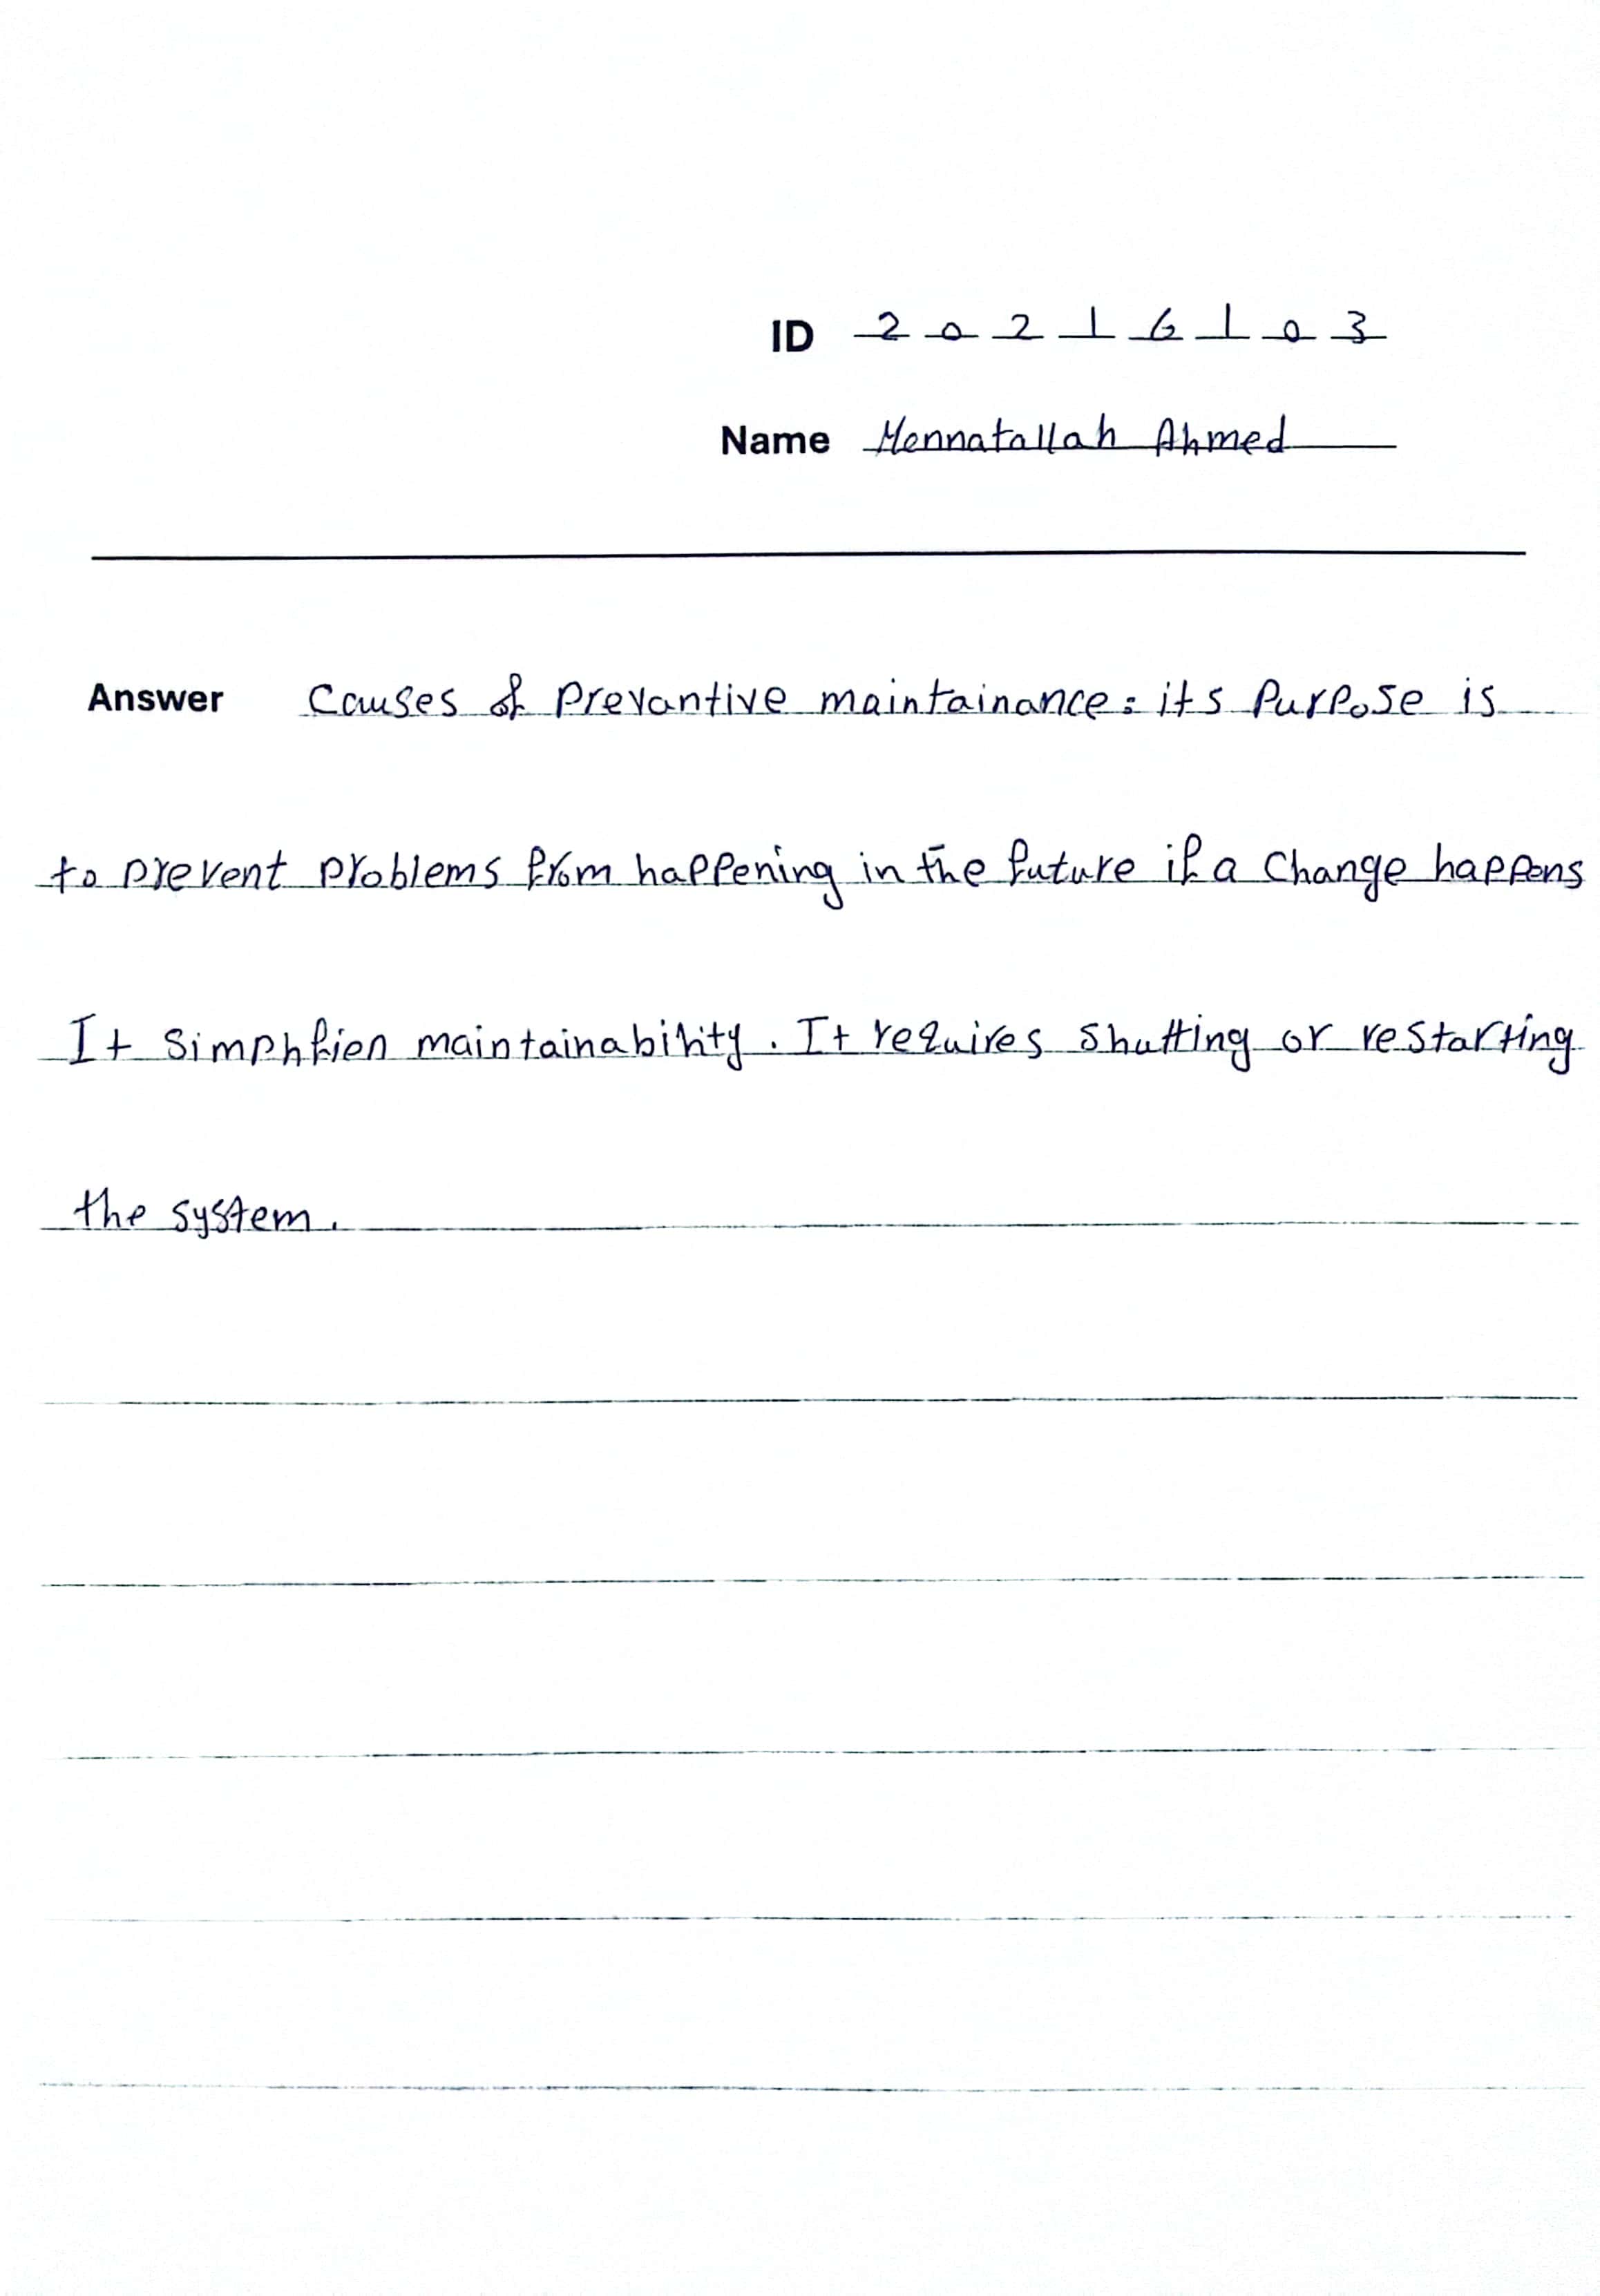 ID 2 0 2 1 6 1 0 3
Name Mennatallah Ahmed
Answer Causes of prevantive maintainance: its purpose is
to prevent problems from happening in the future if a change happens
It simplifien maintainability. It requires shutting or restarting
the system.